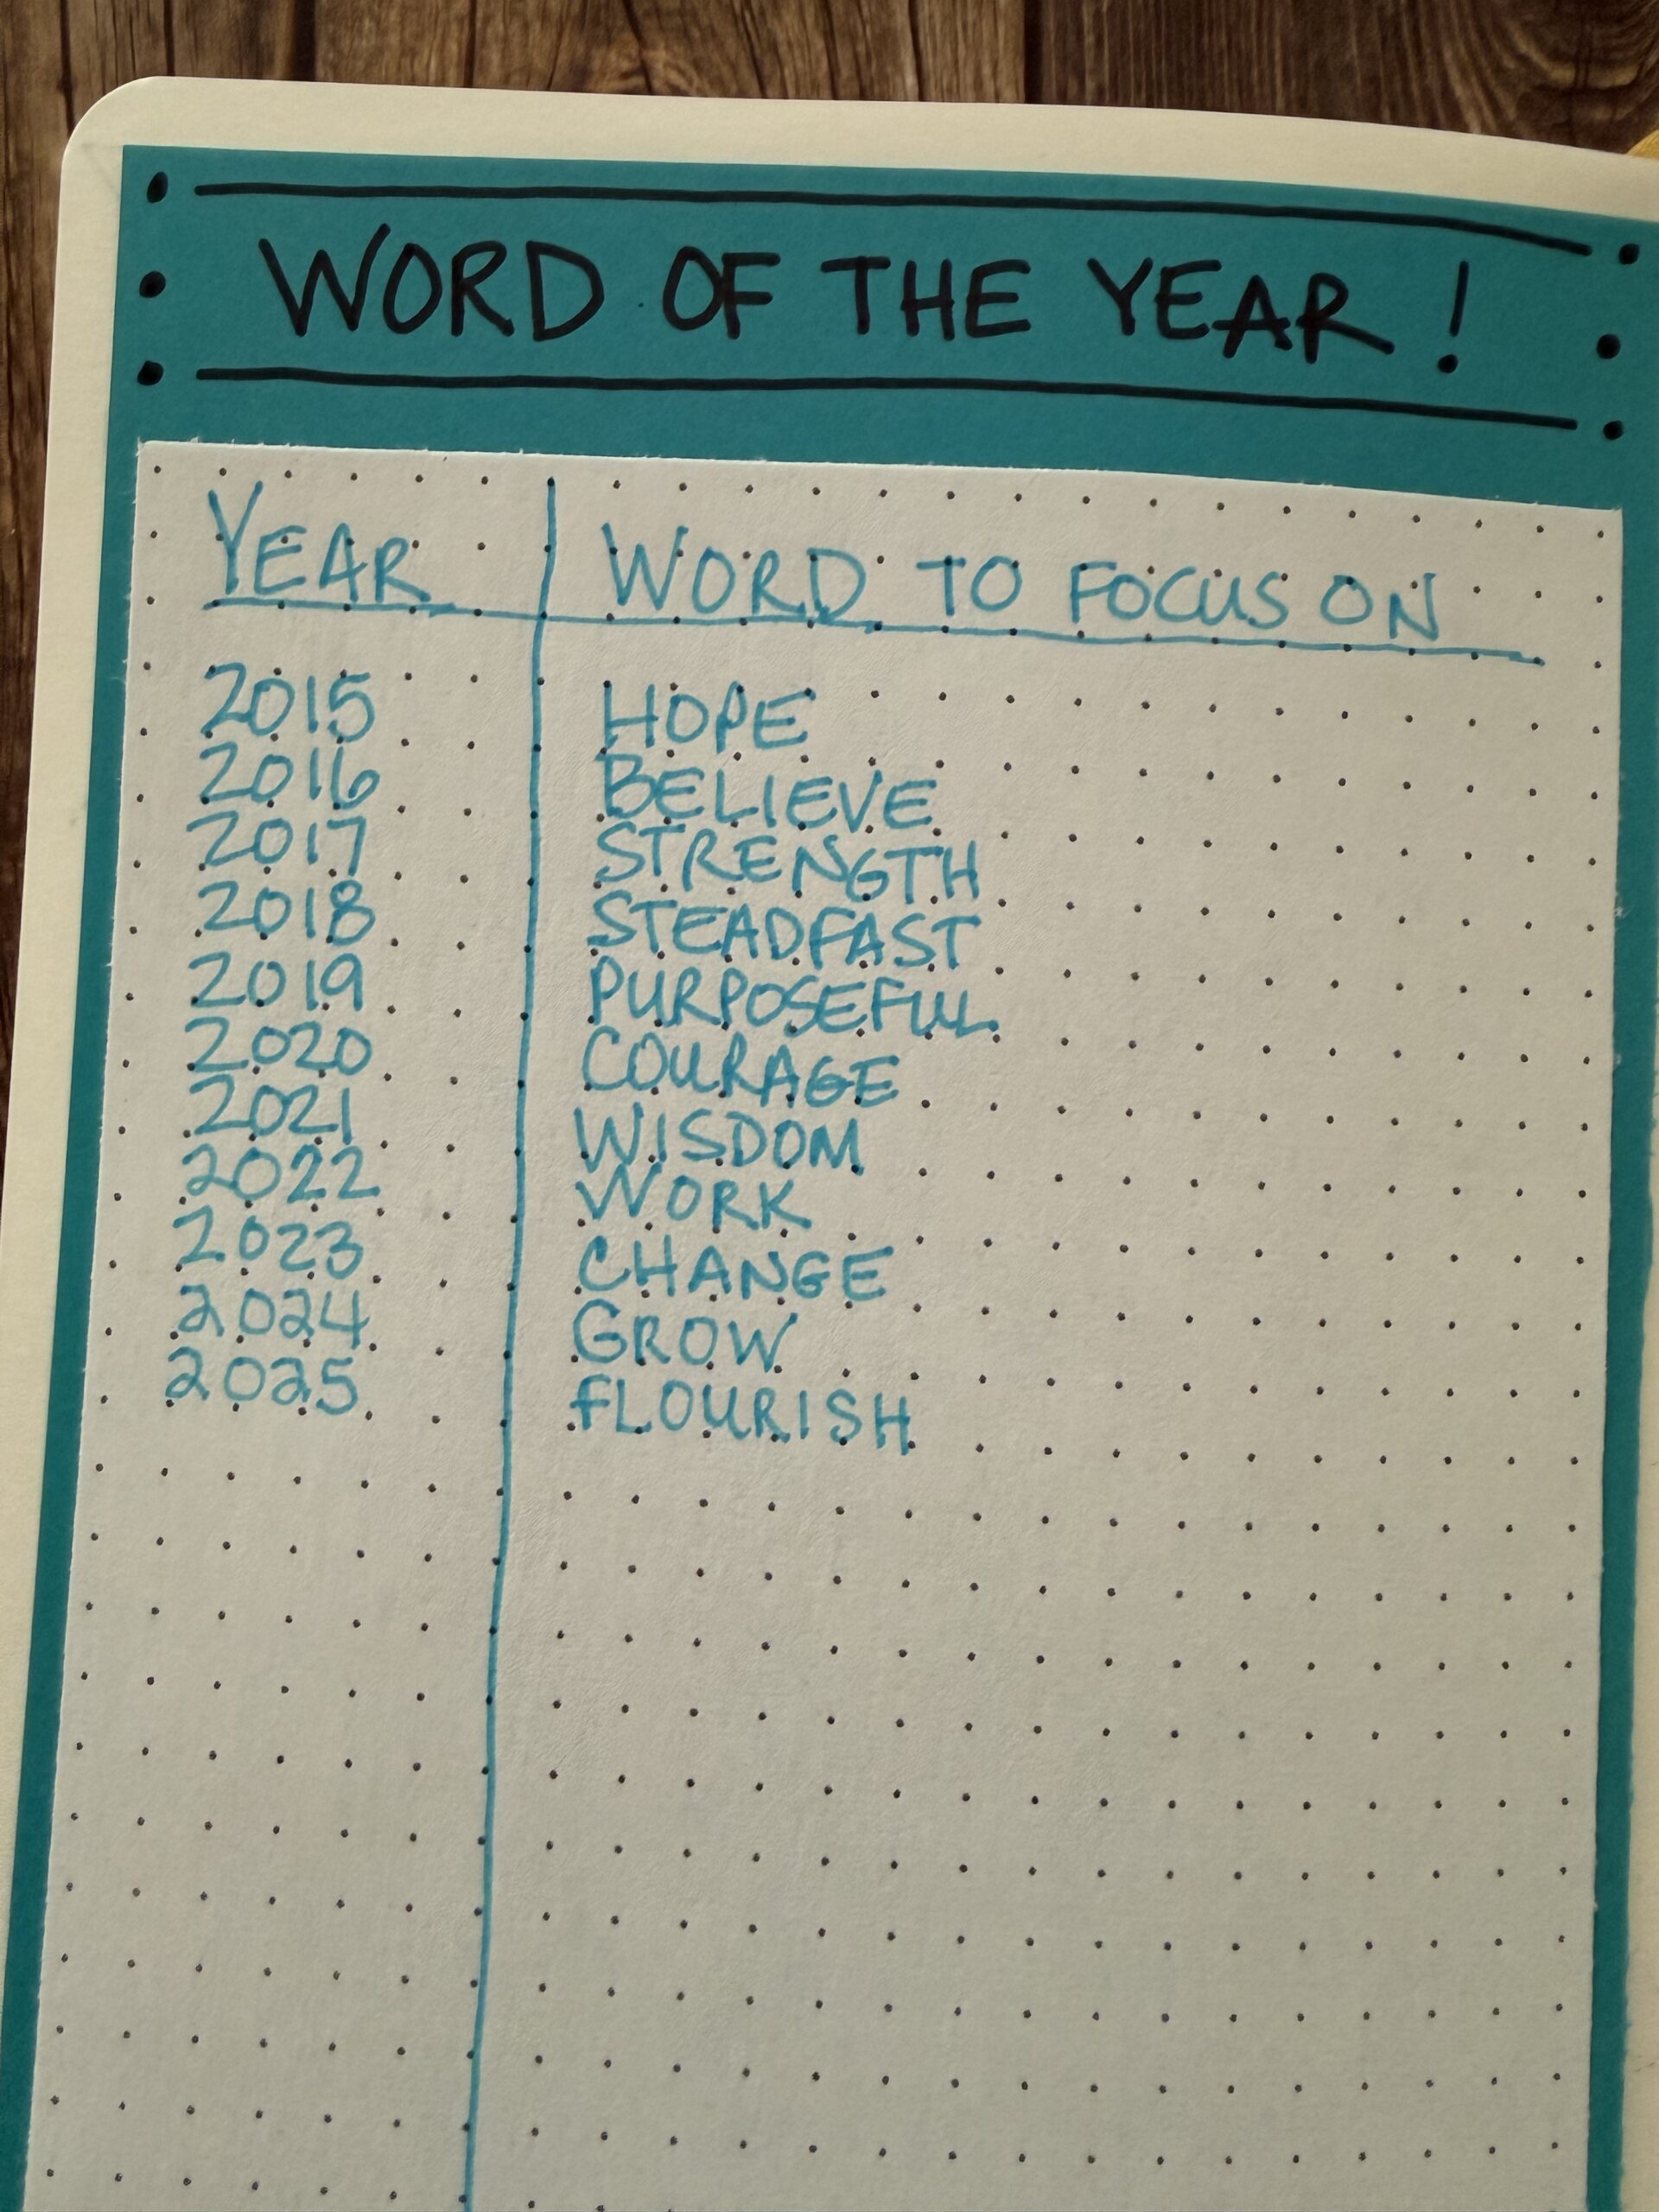 WORD OF THE YEAR!
YEAR WORD TO FOCUS ON
2015 HOPE
2016 BELIEVE
2017 STRENGTH
2018 STEADFAST
2019 PURPOSEFUL
2020 COURAGE
2021 WISDOM
2022 WORK
2023 CHANGE
2024 GROW
2025 FLOURISH